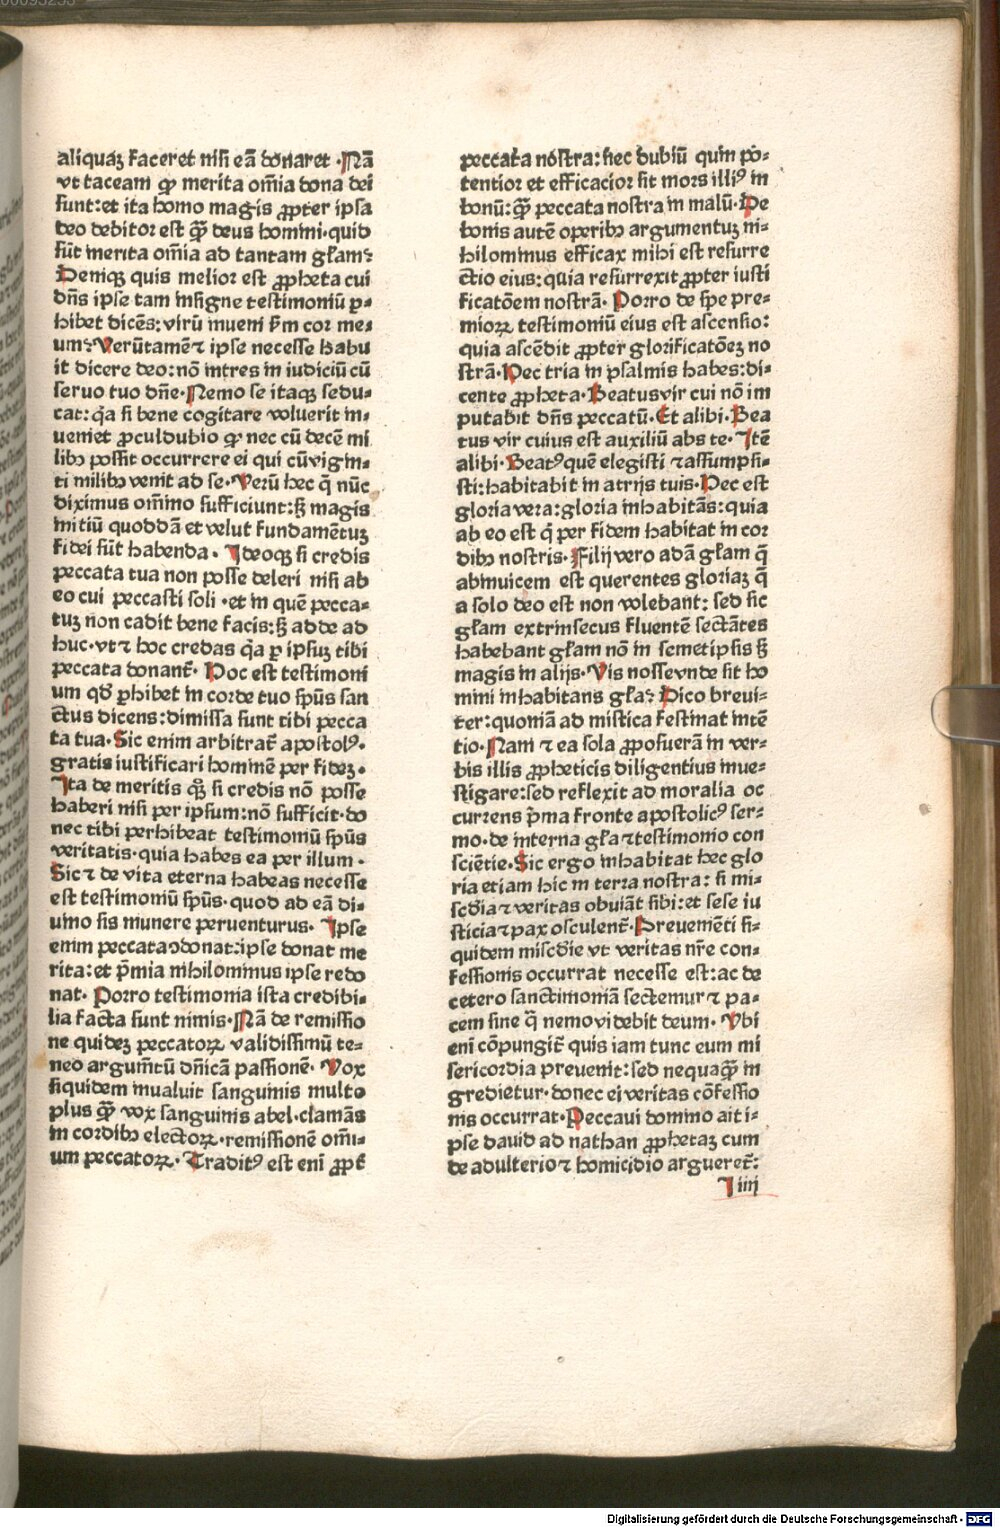 aliquaꝫ faceret nisi eā donaret ·Nā
vt taceam ꝙ merita om̄ia dona dei
sunt:et ita homo magis ꝓpter ipsa
deo debitor est q̄ꝫ deus homini·quid
sūt merita om̄ia ad tantam gl̄am?
Deniqꝫ quis melior est ꝓpheta cui
dn̄s ipse tam insigne testimoniū ꝑ-
hibet dicēs:virū inueni ẜm cor me-
um?Verūtamē ⁊ ipse necesse habu
it dicere deo:nō intres in iudiciū cū
seruo tuo dn̄e·Nemo se itaqꝫ sedu-
cat:q̄a si bene cogitare voluerit in-
ueniet ꝓculdubio ꝙ nec cū decē mi
libꝫ possit occurrere ei qui cū vigin-
ti milibꝫ venit ad se·Verū hec q̄ nūc
diximus omnino sufficiunt:sꝫ magis
initiū quoddā et velut fundamētuꝫ
fidei sūt habenda· Ideoqꝫ si credis
peccata tua non posse deleri nisi ab
eo cui peccasti soli ·et in quē pecca-
tuꝫ non cadit bene facis:sꝫ adde ad
huc·vt ⁊ hoc credas q̄a ꝑ ipsuꝫ tibi
peccata donant᷑· Hoc est testimoni
um qd̄ ꝑhibet in corde tuo sp̄us san
ctus dicens:dimissa sunt tibi pecca
ta tua·Sic enim arbitrat᷑ apostolꝰ·
gratis iustificari hominē per fideꝫ·
Ita de meritis qꝫ si credis nō posse
haberi nisi per ipsum:nō sufficit·do
nec tibi perhibeat testimoniū sp̄us
veritatis·quia habes ea per illum·
Sic ⁊ de vita eterna habeas necesse
est testimoniū sp̄us·quod ad eā di-
uino sis munere peruenturus· Ipse
enim peccata ꝯdonat:ipse donat me
rita:et p̄mia nihilominus ipse redo
nat· Porro testimonia ista credibi-
lia facta sunt nimis·Nā de remissio
ne quideꝫ peccatoꝝ validissimū te-
neo argum̄tū dn̄icā passionē· Vox
siquidem inualuit sanguinis multo
plus q̄ꝫ vox sanguinis abel·clamās
in cordibꝫ electoꝝ·remissionē om̄i-
um peccatoꝝ·Traditꝰ est eni ꝓpt᷑
peccata nostra:nec dubiū quin po-
tentior et efficacior sit mors illiꝰ in
bonū:q̄ꝫ peccata nostra in malū·De
bonis autē operibꝫ argumentuꝫ ni-
hilominus efficax mihi est resurre
ctio eius:quia resurrexit ꝓpter iusti
ficatōem nostrā· Porro de spe pre-
mioꝝ testimoniū eius est ascensio:
quia ascēdit ꝓpter glorificatōeꝫ no
strā·Hec tria in psalmis habes:di-
cente ꝓpheta·Beatus vir cui nō im
putabit dn̄s peccatū·Et alibi·Bea
tus vir cuius est auxiliū abs te·Itē
alibi·Beatꝰ quē elegisti ⁊ assumpsi-
sti:habitabit in atrijs tuis·Hec est
gloria vera:gloria inhabitās:quia
ab eo est q̄ per fidem habitat in cor
dibꝫ nostris·Filij vero adā gl̄am q̄
abinuicem est querentes gloriaꝫ q̄
a solo deo est non volebant: sed sic
gl̄am extrinsecus fluentē sectātes
habebant gl̄am nō in semetipsis sꝫ
magis in alijs·Vis nosse vnde sit ho
mini inhabitans gl̄a? Dico breui-
ter:quoniā ad mistica festinat intē
tio·Nam ⁊ ea sola ꝓposuerā in ver-
bis illis ꝓpheticis diligentius inue-
stigare:sed reflexit ad moralia oc
currens p̄ma fronte apostolicꝰ ser-
mo·de interna gl̄a ⁊ testimonio con
sciētie·Sic ergo inhabitat hec glo
ria etiam hic in terra nostra: si mi-
sc̄dia ⁊ veritas obuiāt sibi:et sese iu
sticia ⁊ pax osculent᷑·Preueniēti si-
quidem misc̄die vt veritas nr̄e con-
fessionis occurrat necesse est:ac de
cetero sanctimoniā sectemur ⁊ pa-
cem sine q̄ nemo videbit deum· Vbi
eni cōpungit᷑ quis iam tunc eum mi
sericordia preuenit:sed nequaq̄ꝫ in
gredietur·donec ei veritas cōfessio
nis occurrat·Peccaui domino ait i-
pse dauid ad nathan ꝓphetaꝫ cum
de adulterio ⁊ homicidio argueret᷑:
I iiij
Digitalisierung gefördert durch die Deutsche Forschungsgemeinschaft - DFG